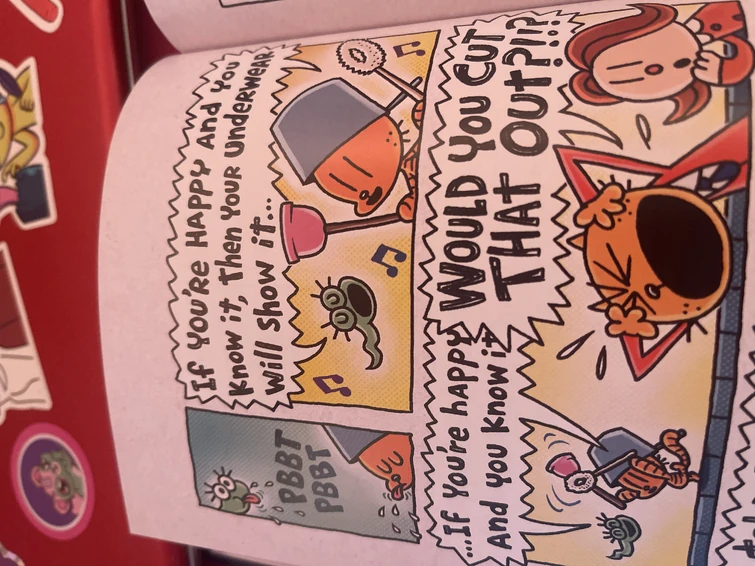 PBBT
PBBT
If YOU'RE HAPPY AND YOU
Know it, then YOUR UNDERWEAR
Will Show it...
...If YOU'RE HAPPY
AND YOU KNOW it
WOULD YOU CUT
THAT OUT?!!?